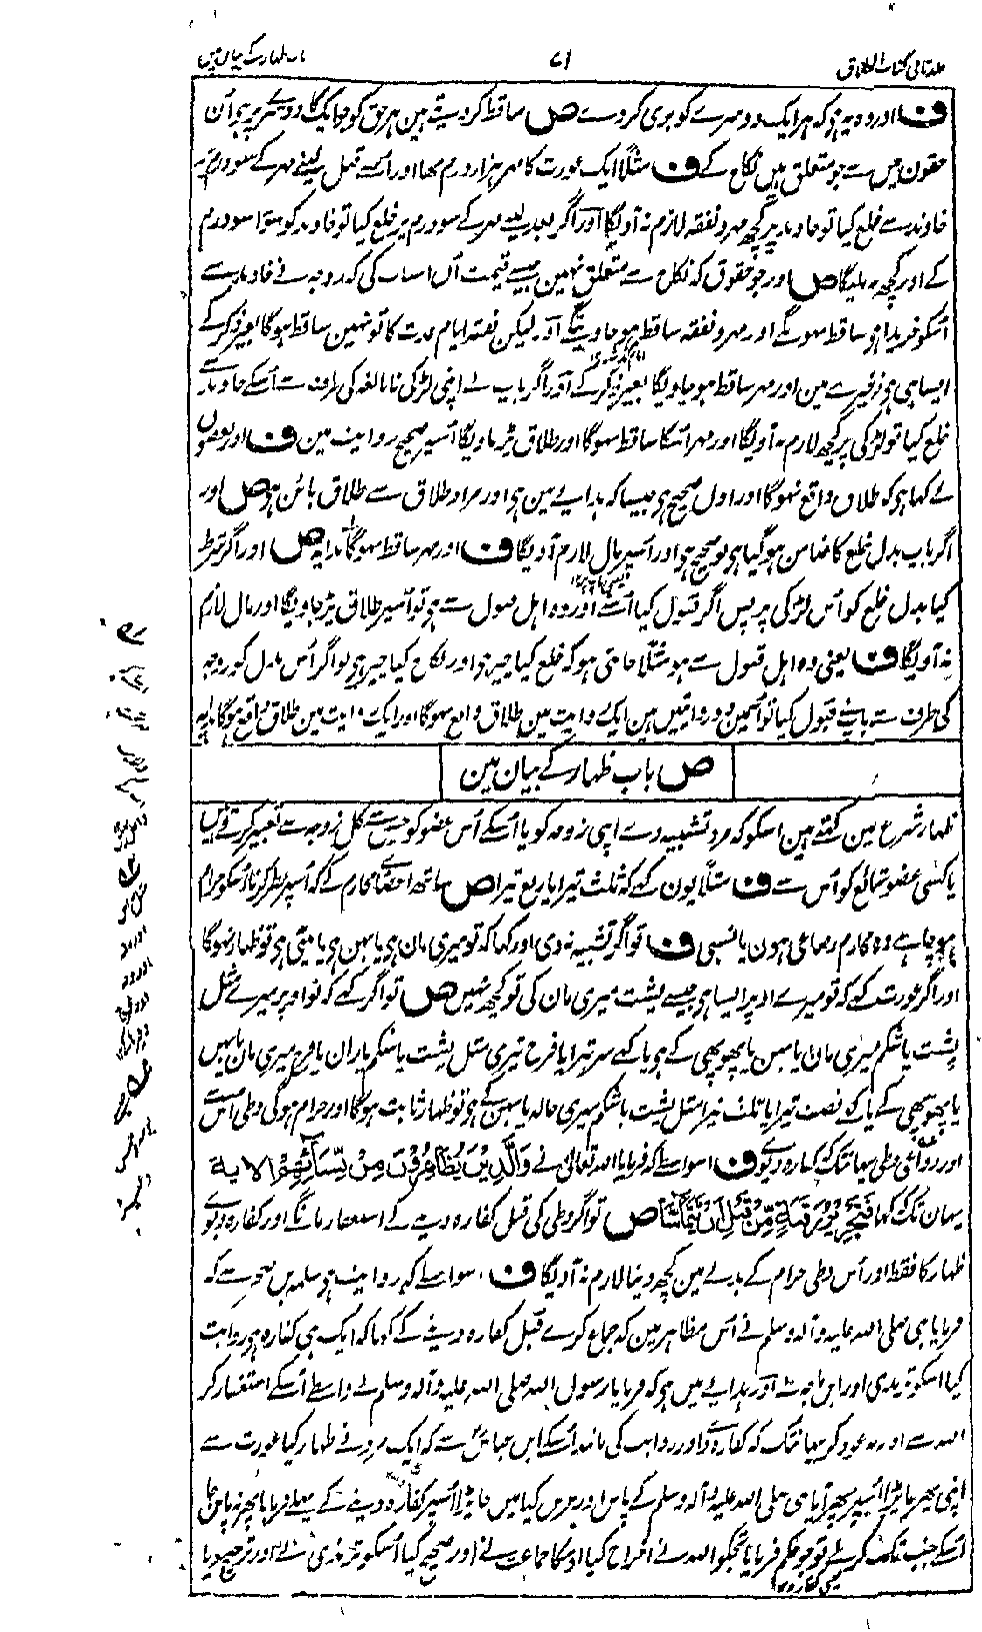 جلد ثانی کتاب الطلاق
۷۱
باب ظہار کے بیان مین
ف اور وہ یہ ہی کہ ہر ایک دوسرے کو بری کردے ص ساقط کر دیتے ہین ہر حق کو جو ایک کا دوسرے پر ہو اُن
حقون مین سے جو متعلق ہین نکاح کے ف مثلاً ایک عورت کا مہر ہزار درم تھا اور اُسے قبل لینے مہر کے سو درم پر
خاوند سے خلع کیا تو خاوند پر کچھ مہر و نفقہ لازم نہ آویگا اور اگر بعد لینے مہر کے سو درم پر خلع کیا تو خاوند کو سوا سو درم
کے اور کچھ نہ ملیگا ص اور جو حقوق کہ نکاح سے متعلق نہین جیسے قیمت اُس اسباب کی کہ زوجہ نے خاوند سے
اُسکو خریدا ہو ساقط نہونگے اور مہر و نفقہ ساقط ہو جاوینگے اور لیکن نفقہ ایام عدت کا تو نہین ساقط ہوگا بغیر ذکر کے
ایسا ہی ہی ذخیرے مین اور مہر ساقط ہو جاویگا بغیر ذکر کے اور اگر باپ نے اپنی لڑکی نابالغہ کی طرف سے اُسکے خاوند سے
خلع کیا تو لڑکی پر کچھ لازم نہ آویگا اور مہر اُسکا ساقط نہوگا اور طلاق پڑ جاویگا اُسپر صحیح روایت مین ف اور بعضون
نے کہا ہو کہ طلاق واقع نہوگا اور اول صحیح ہی جیسا کہ ہدایے مین ہی اور مراد طلاق سے طلاق بائن ہی ص اور
اگر باپ بدل خلع کا ضامن ہو گیا ہو تو صحیح ہی اور اُسپر مال لازم آویگا ف اور مہر ساقط نہوگا ہدایہ ص اور اگر شرط
کیا بدل خلع کو اُس لڑکی پر پس اگر قبول کیا اُسنے اور وہ اہل قبول سے ہی تو اُسپر طلاق پڑ جاویگا اور مال لازم
نہ آویگا ف یعنی وہ اہل قبول سے ہو مثلاً جانتی ہو کہ خلع کیا چیز ہی اور نکاح کیا چیز ہی تو اگر اُس بدل کو زوجہ
کی طرف سے باپ نے قبول کیا تو اُسمین دو روایتین ہین ایک روایت مین طلاق واقع نہوگا اور ایک روایت مین طلاق واقع ہوگا ہدایہ
ص باب ظہار کے بیان مین
ظہار شرع مین کہتے ہین اسکو کہ مرد تشبیہ دے اپنی زوجہ کو یا اُسکے اُس عضو کو جس سے کل زوجہ سے تعبیر کرتے ہین
یا کسی عضو شائع کو اُس سے ف مثلاً یون کہے کہ ثلث تیرا یا ربع تیرا ص ساتھ اعضاے محارم کے کہ اُسپر نظر کرنا اُسکو حرام
ہو چاہے وہ محارم رضاعی ہون یا نسبی ف تو اگر تشبیہ نہ دی اور کہا کہ تو میری مان ہی یا بہن ہی یا بیٹی ہی تو ظہار نہوگا
اور اگر عورت کہے کہ تو میرے اوپر ایسا ہی جیسے پشت میری مان کی تو کچھ نہین ص تو اگر کہے کہ تو اوپر میرے مثل
پشت یا شکم میری مان یا بہن یا پھوپھی کے ہی یا کہے سر تیرا یا فرج تیری مثل پشت یا شکم یا ران یا فرج میری مان یا بہن
یا پھوپھی کے یا کہے نصف تیرا یا ثلث تیرا مثل پشت یا شکم میری خالہ یا بہن کے ہی تو ظہار ثابت ہوگا اور حرام ہوگی وطی اُس سے
اور دواعی وطی یہانتک کہ کفارہ دیوے ف اسواسطے کہ فرمایا اللہ تعالیٰ نے وَالَّذِیْنَ یُظَاهِرُوْنَ مِنْ نِّسَآئِهِمْ الایة
یہان تک کہ کہا فَتَحْرِیْرُ رَقَبَةٍ مِّنْ قَبْلِ اَنْ یَّتَمَآسَّا ص تو اگر وطی کی قبل کفارہ دینے کے استغفار مانگے اور کفارہ دیوے
ظہار کا فقط اور اُس وطی حرام کے بدلے مین کچھ دینا لازم نہ آویگا ف اسواسطے کہ روایت ہی سلمہ بن صخر سے کہ
فرمایا نبی صلی اللہ علیہ وآلہ وسلم نے اُس مظاہر مین کہ جماع کرے قبل کفارہ دینے کے کہا کہ ایک ہی کفارہ ہی روایت
کیا اسکو ترمذی اور ابن ماجہ نے اور ہدایے مین ہی کہ فرمایا رسول اللہ صلی اللہ علیہ وآلہ وسلم نے واسطے اُسکے استغفار کر
اللہ سے اور نہ عود کر یہانتک کہ کفارہ دے اور روایت کی مانند اُسکے ابن عباس سے کہ ایک مرد نے ظہار کیا عورت سے
اپنی پھر جا پڑا اُسپر پھر آیا نبی صلی اللہ علیہ وآلہ وسلم کے پاس اور عرض کیا مین جا پڑا اُسپر کفارہ دینے کے پہلے فرمایا پھر نہ پاس جا
اُسکے جب تک نہ کرے تو جو حکم فرمایا تجکو اللہ نے اخراج کیا اسکا جماعت نے اور صحیح کیا اُسکو ترمذی نے اور ترجیح دیا
یعنی کفارہ دے